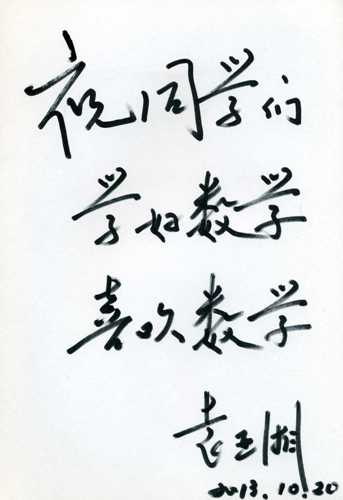 祝同学们
学好数学
喜欢数学
袁亚湘
2013.10.20